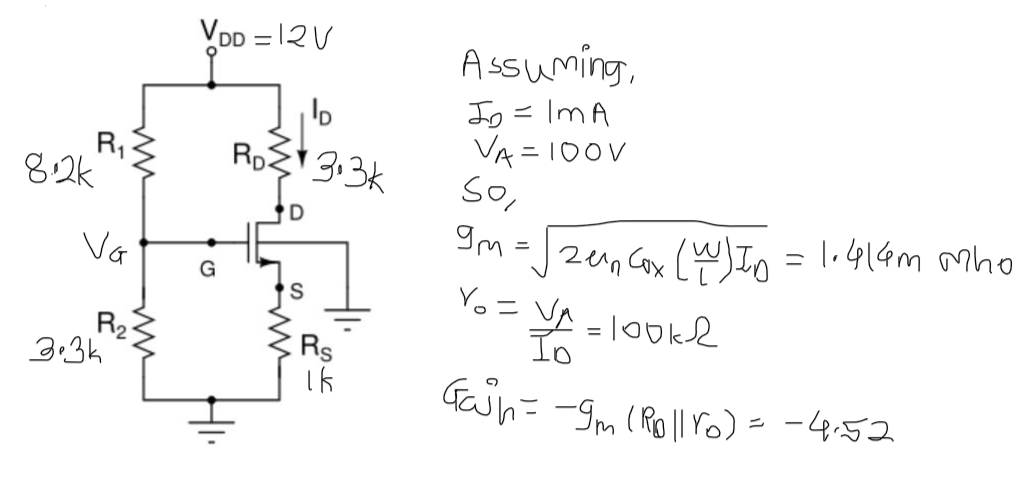 VDD = 12V
ID
R1
8.2k
RD
3.3k
D
VG
G
S
R2
3.3k
RS
1k
Assuming,
ID = 1mA
VA = 100V
So,
gm = √2unCox(W/L)ID = 1.414m mho
ro = VA/ID = 100kΩ
Gain = -gm(RD||ro) = -4.52